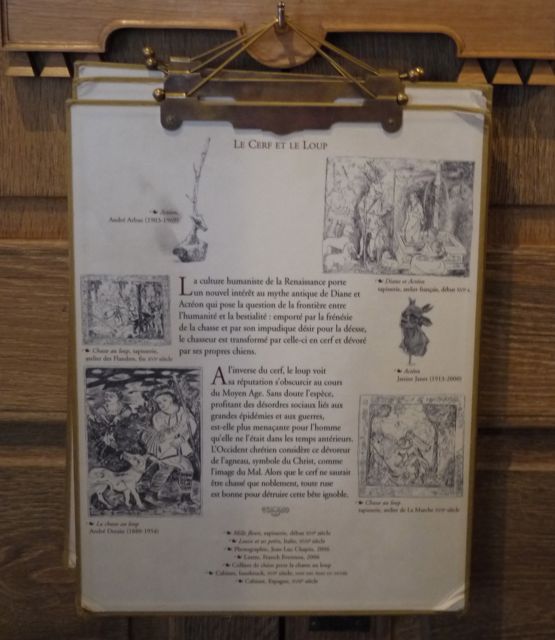 Le Cerf et le Loup
Actéon,
André Arbus (1903-1969)
Diane et Actéon
tapisserie, atelier français, début XVIIe s.
La culture humaniste de la Renaissance porte
un nouvel intérêt au mythe antique de Diane et
Actéon qui pose la question de la frontière entre
l'humanité et la bestialité : emporté par la frénésie
de la chasse et par son impudique désir pour la déesse,
le chasseur est transformé par celle-ci en cerf et dévoré
par ses propres chiens.
Chasse au loup, tapisserie,
atelier des Flandres, fin XVIe siècle
Actéon
Janine Janet (1913-2000)
A l'inverse du cerf, le loup voit
sa réputation s'obscurcir au cours
du Moyen Age. Sans doute l'espèce,
profitant des désordres sociaux liés aux
grandes épidémies et aux guerres,
est-elle plus menaçante pour l'homme
qu'elle ne l'était dans les temps antérieurs.
L'Occident chrétien considère ce dévoreur
de l'agneau, symbole du Christ, comme
l'image du Mal. Alors que le cerf ne saurait
être chassé que noblement, toute ruse
est bonne pour détruire cette bête ignoble.
Chasse au loup
tapisserie, atelier de La Marche
La chasse au loup
André Derain (1880-1954)
Mille fleurs, tapisserie, début XVIe siècle
Louve et ses petits, Italie, siècle
Photographie, Jean Luc Chapin, 2006
Lustre, Franck Evennou, 2006
Colliers de chien pour la chasse au loup
Cabinet, Innsbruck, siècle,
Cabinet, Espagne, siècle